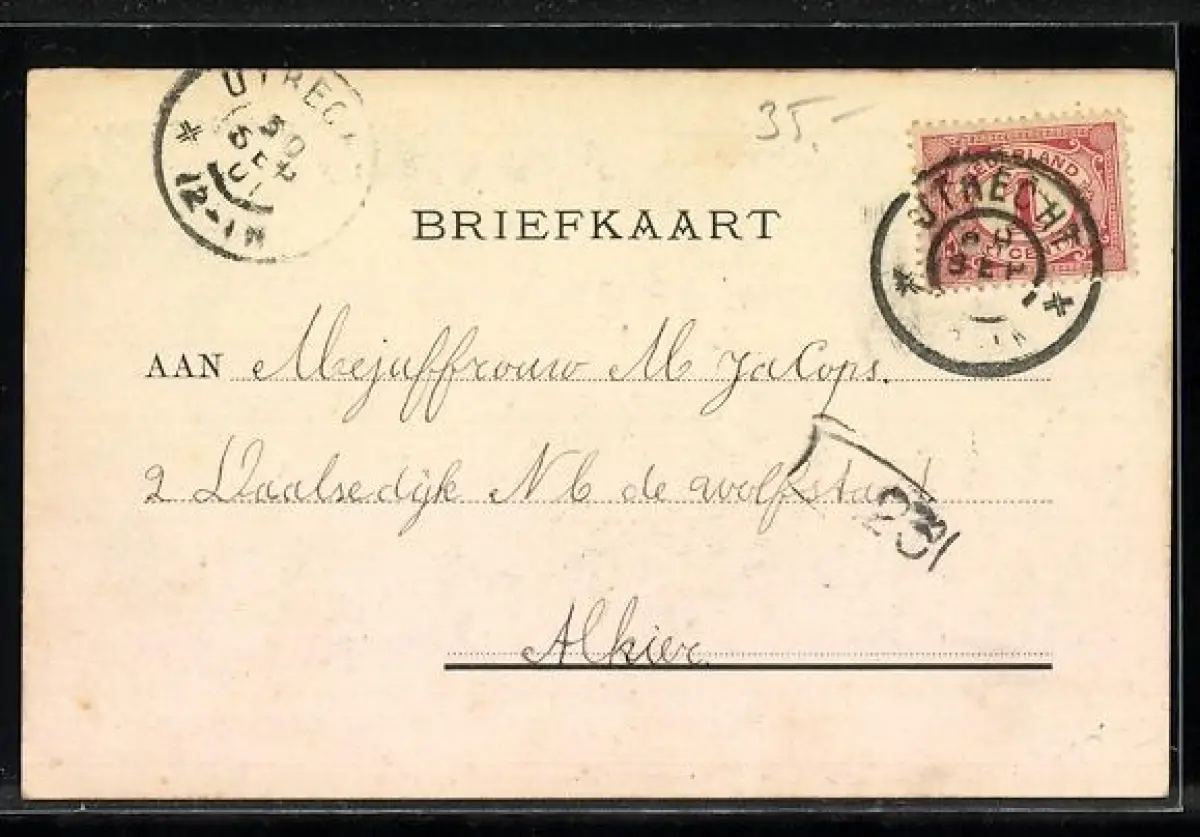 UTRECHT
12-1N
35,-
NEDERLAND
UTRECHT
BRIEFKAART
AAN Mejuffrouw M Jacops.
2 Daalsedijk Nb de wolfstaat
23
Alhier